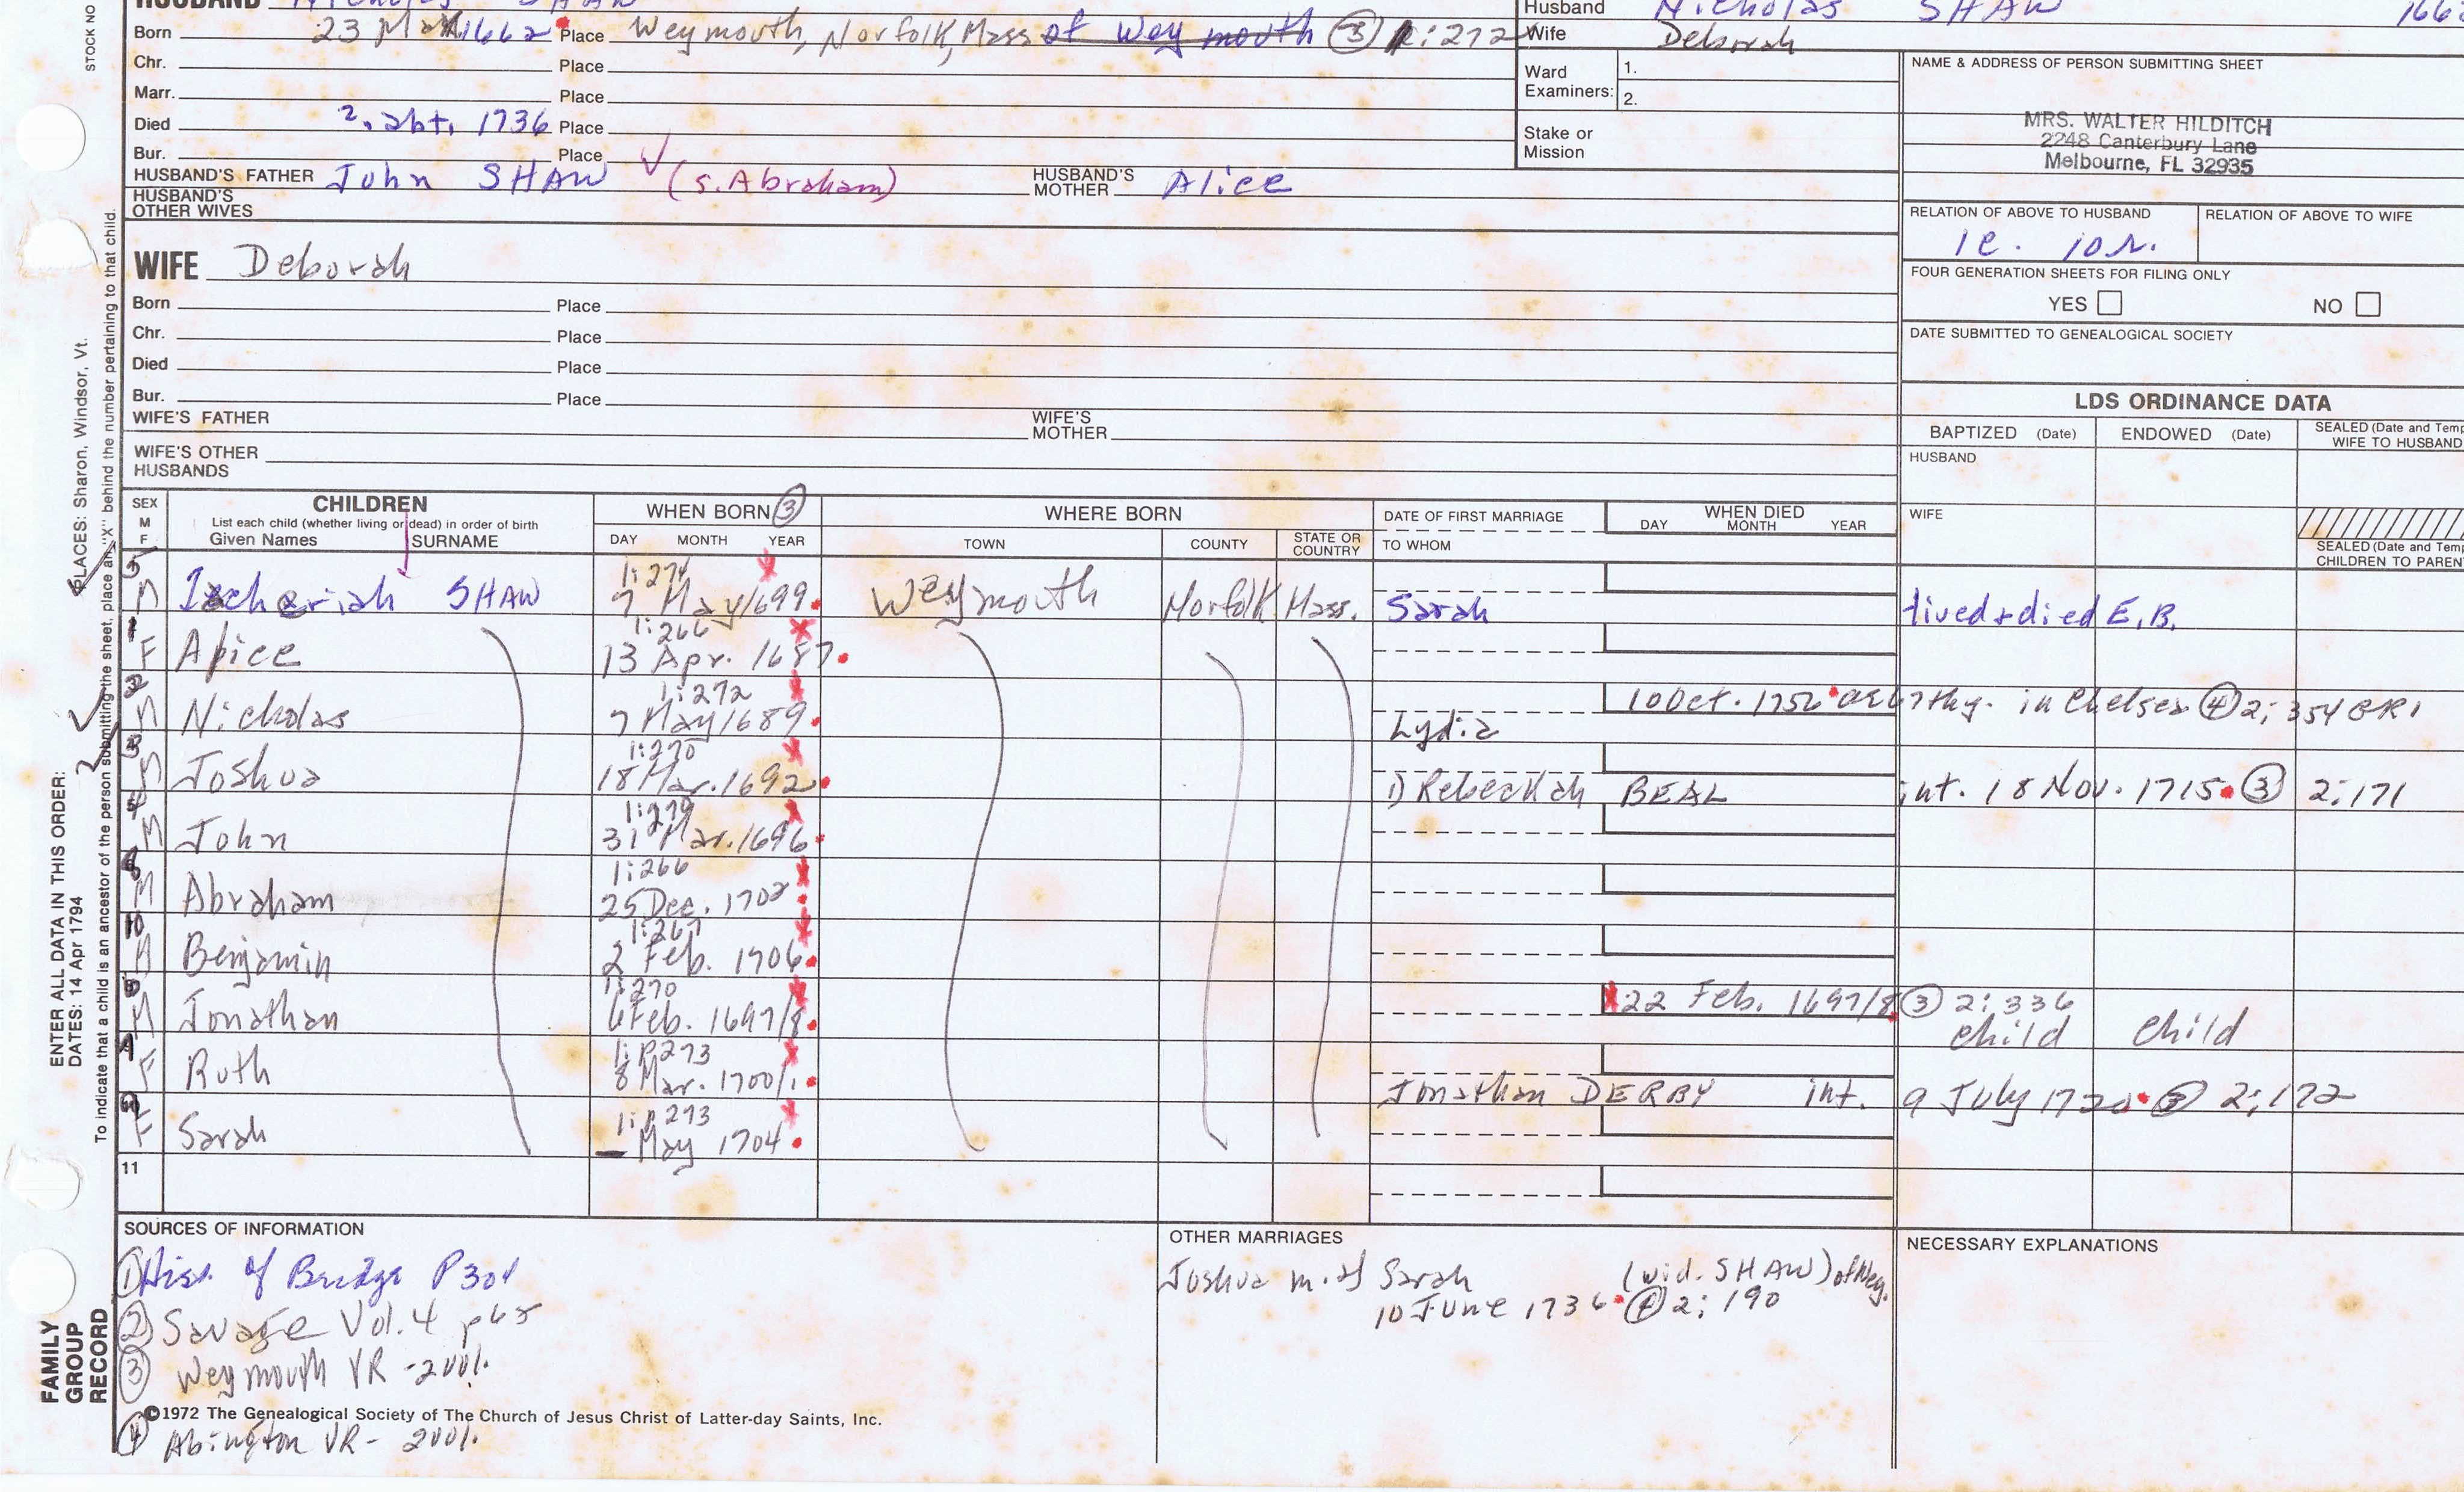 HUSBAND Nicholas SHAW
Born 23 Mar 1662 Place Weymouth, Norfolk, Mass of Weymouth ③ 1:272
Chr. Place
Marr. Place
Died 2. abt. 1736 Place
Bur. Place
HUSBAND'S FATHER John SHAW (s. Abraham) HUSBAND'S MOTHER Alice
HUSBAND'S OTHER WIVES
Husband Nicholas SHAW 166
Wife Deborah
Ward Examiners: 1.
2.
Stake or Mission
NAME & ADDRESS OF PERSON SUBMITTING SHEET
MRS. WALTER HILDITCH
2248 Canterbury Lane
Melbourne, FL 32935
RELATION OF ABOVE TO HUSBAND RELATION OF ABOVE TO WIFE
FOUR GENERATION SHEETS FOR FILING ONLY
YES NO
DATE SUBMITTED TO GENEALOGICAL SOCIETY
WIFE Deborah
Born Place
Chr. Place
Died Place
Bur. Place
WIFE'S FATHER WIFE'S MOTHER
WIFE'S OTHER HUSBANDS
LDS ORDINANCE DATA
BAPTIZED (Date) ENDOWED (Date) SEALED (Date and Temp
WIFE TO HUSBAND
HUSBAND
WIFE
SEALED (Date and Temp
CHILDREN TO PAREN
SEX M F
CHILDREN
List each child (whether living or dead) in order of birth
Given Names SURNAME
WHEN BORN ③
DAY MONTH YEAR
WHERE BORN
TOWN COUNTY STATE OR COUNTRY
DATE OF FIRST MARRIAGE
TO WHOM
WHEN DIED
DAY MONTH YEAR
1:274
M SHAW 7 May 1699 Weymouth Norfolk Mass. Sarah lived + died E.B.
1:266
F Alice 13 Apr. 1687
1:272
M Nicholas 7 May 1689 Lydia 10 Oct. 1756 in Chelsea ④ 2:354 GR1
1:270
M Joshua 18 Mar. 1692 1) Rebeckah BEAL int. 18 Nov. 1715 ③ 2:171
M John 31 Mar. 1696
1:266
M Abraham 25 Dec. 1702
10
1:267
M Benjamin 2 Feb. 1706
1:270
M Jonathan 6 Feb. 1697/8 22 Feb. 1697/8 ③ 2:336
child child
1:P273
F Ruth 8 Mar. 1700/1 Jonathan DERBY int. 9 July 1720 ③ 2:172
1:P273
F Sarah — May 1704
11
SOURCES OF INFORMATION
① Hist. of Bridge P301
② Savage Vol. 4 p65
③ Weymouth VR -
©1972 The Genealogical Society of The Church of Jesus Christ of Latter-day Saints, Inc.
④ Abington VR -
OTHER MARRIAGES
Joshua Sarah (wid. SHAW) of Wey.
10 June 1736 2:190
NECESSARY EXPLANATIONS
STOCK NO
PLACES: Sharon, Windsor, Vt.
ENTER ALL DATA IN THIS ORDER:
DATES: 14 Apr 1794
To indicate that a child is an ancestor of the person submitting the sheet, place an "X" behind the number pertaining to that child.
FAMILY
GROUP
RECORD